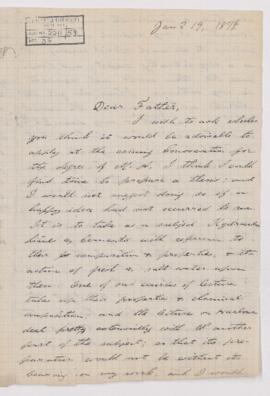 Jan 19, 1878
Dear Father,
I wish to ask whether
you think it would be advisable to
apply at the coming Convocation for
the degree of M. A. I think I could
find time to prepare a thesis; and
I would not suggest doing so if a
happy idea had not occurred to me
It is to take as a subject Hydraulic
limes & cements with reference to
their composition & properties, & the
action of fresh & salt water upon
them. One of our courses of lectures
takes up their properties & chemical
composition; and the lectures on Harbours
deal pretty extensively with
another
part of the subject; so that its pre-
paration would not be without its
bearing on my work, and I would